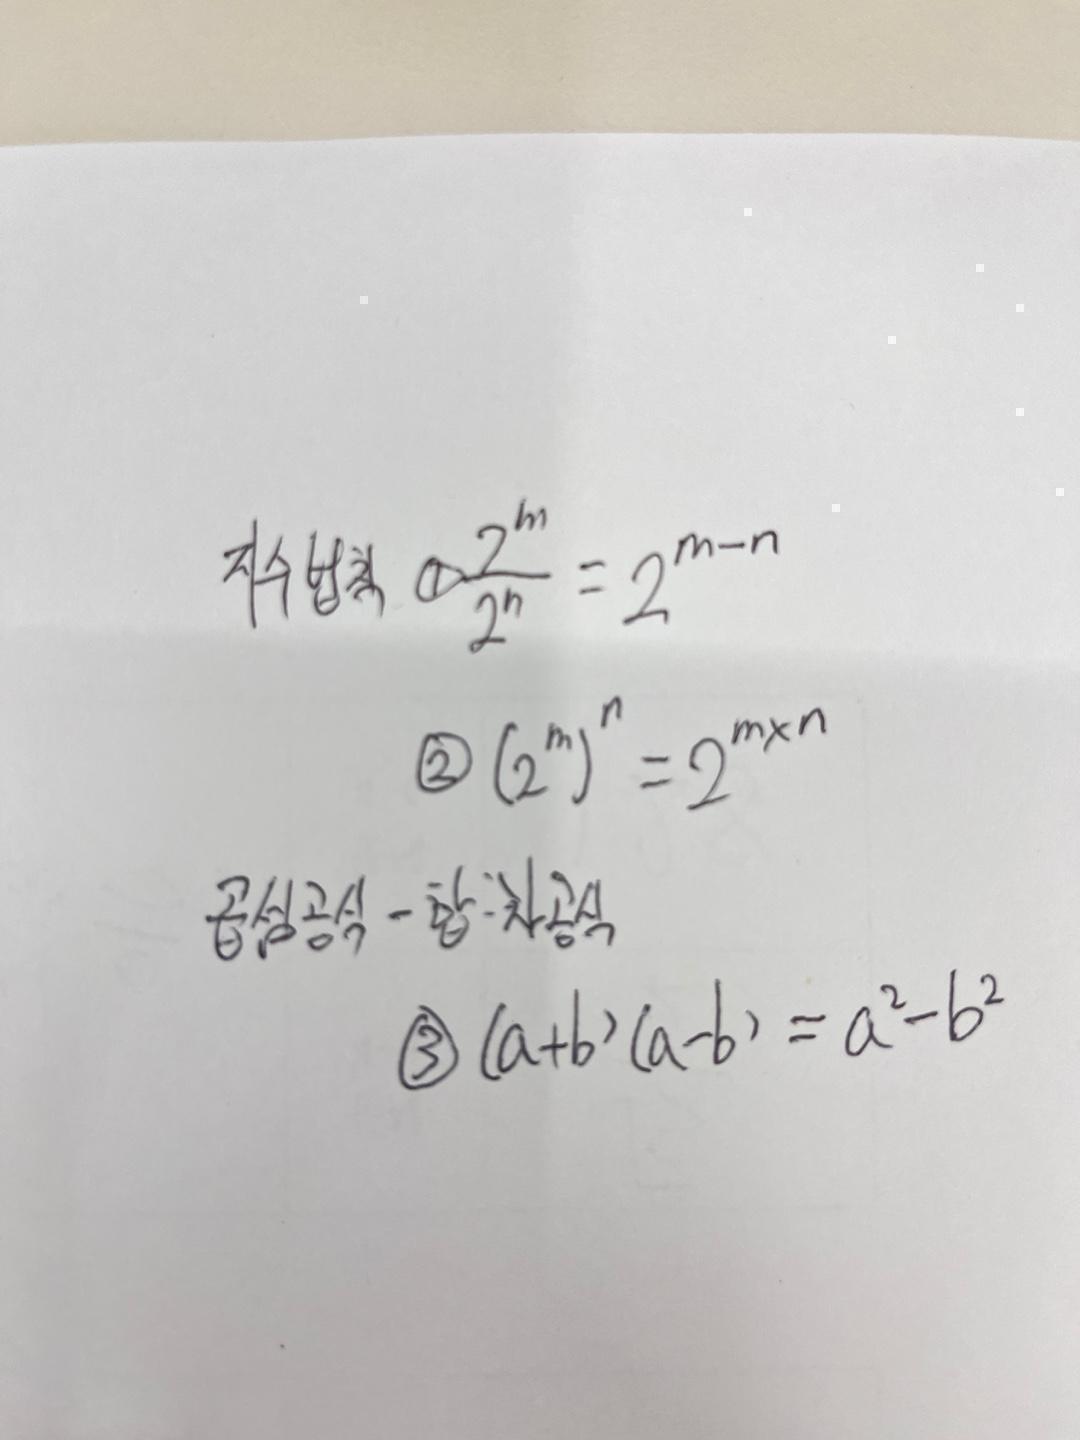 지수법칙 ① 2^m/2^n = 2^(m-n)
② (2^m)^n = 2^(m×n)
곱셈공식 - 합·차공식
③ (a+b)(a-b) = a²-b²